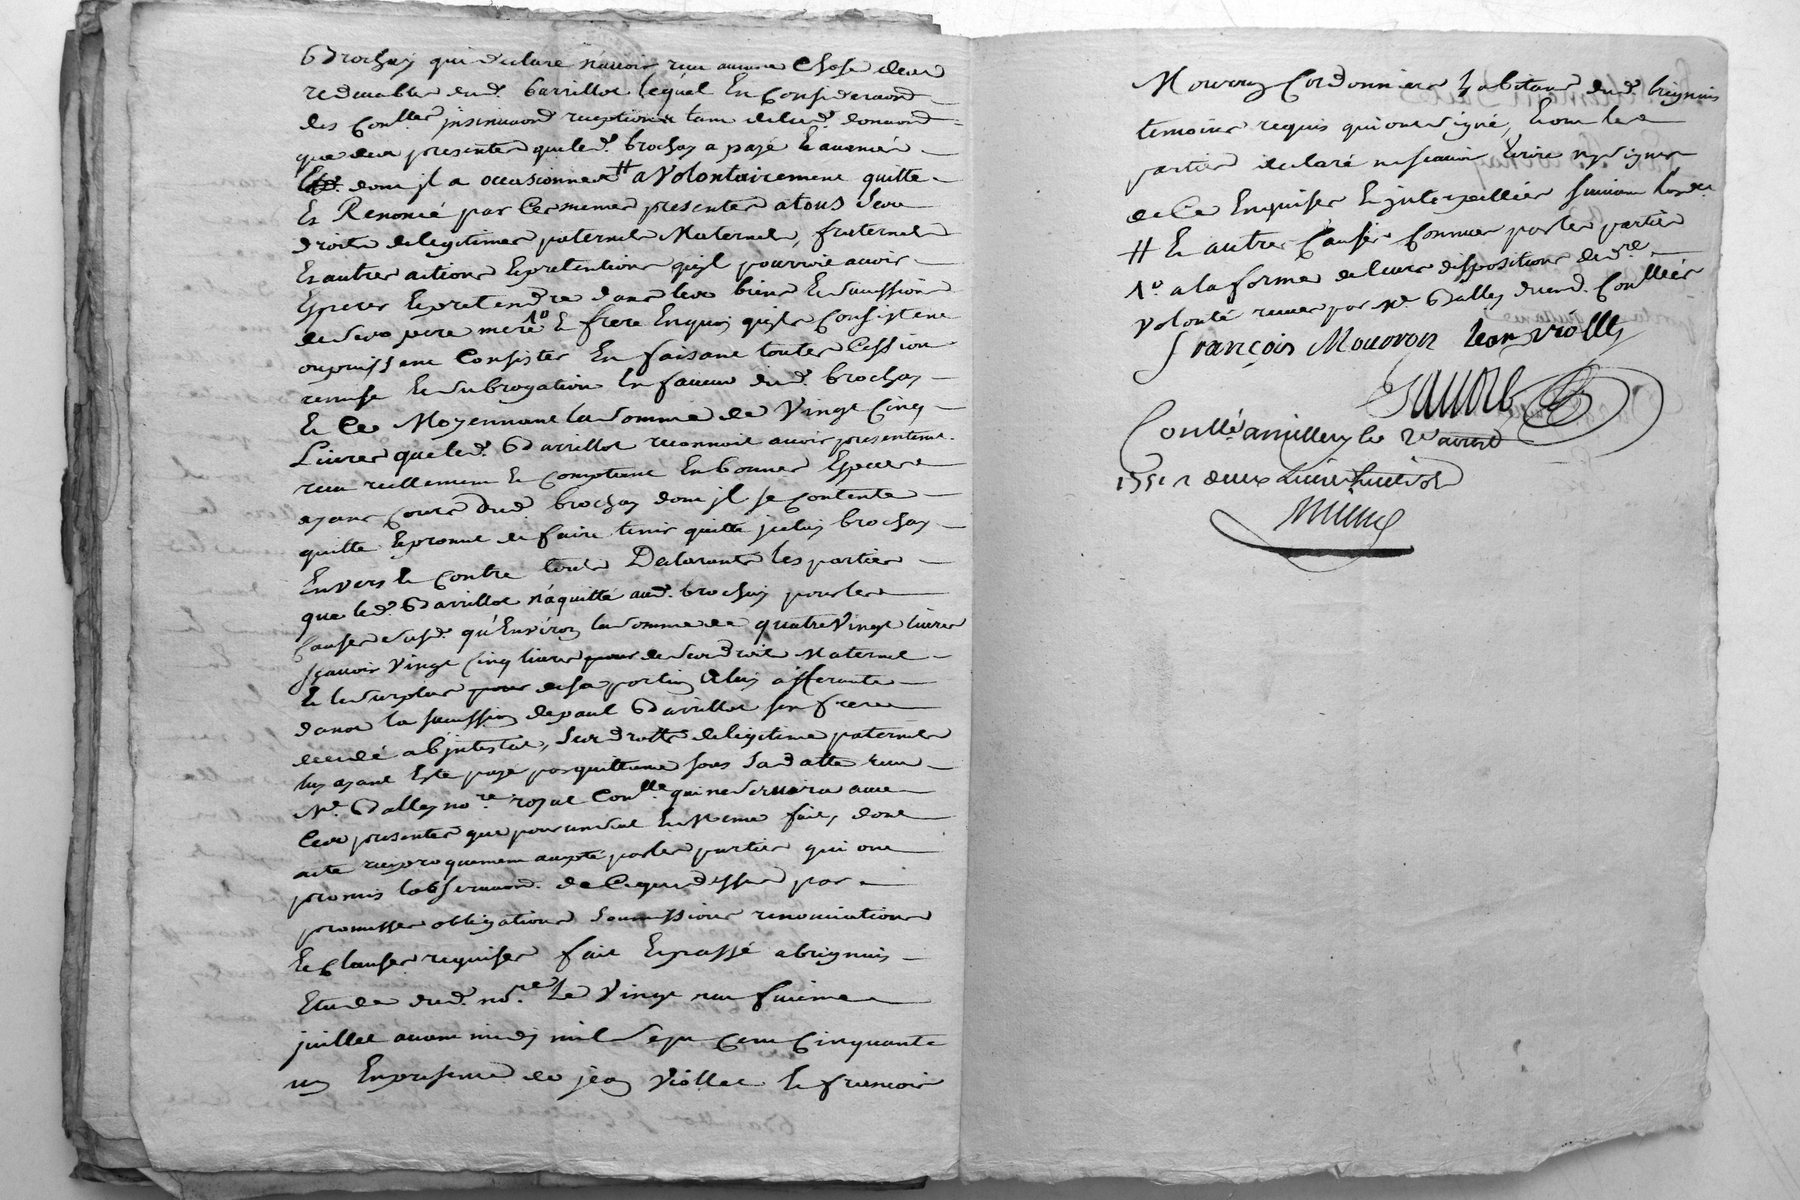 Brochay qui declare n'avoir reçu aucune chose deux
redevable dud. Barrillot lequel En Consideraõn
des Conllée insinuaõn reception tant de lad. donaõn
que des presentes que led. brochay a payé Et avancé
dont jl a occasionnées # a Volontairement quitte
Et Renoncé par Ces memes presentes a tous Ses
droits de legitimes paternels Maternels, fraternels
Et autres actions Et pretentions qu'jl pourroit avoir
Esperer Et pretendre dans les biens Et Successions
de Ses pere mere 1º Et frere En quoy qu'jls Consistent
ou puissent Consister En faisant toutes Cession
remise Et Subrogation En faveur dud. brochay
Et Ce Moyennant la Somme de Vingt Cinq
Livres que led. Barrillot reconnoit avoir presentement
reçu reellement Et comptant En bonnes Especes
ayant Cours dud. brochay dont jl Se Contente
quitte Et promet de faire tenir quitte jceluy brochay
Envers Et Contre tous Declarants les parties
que led. Barrillot n'a quitté aud. brochay pour les
Causes Susd. qu'Environ la Somme de quatre Vingt livres
sçavoir Vingt Cinq livres pour Ses droits Maternels
Et le Surplus pour de Sa portion a luy afferante
dans la Succession de paul Barrillot Son frere
decedé abjntestat, Ses droits de legitime paternels
luy ayant Esté payé par quittance sous Sa datte reçue
Me. Dalley nore. royal Conllé qui ne Servira avec
Ces presentes que pour un Seul Et Meme fait, dont
acte reciproquement accepté par les parties qui ont
promis l'observaõn. de Ce que dessus par
promesses obligations Soumissions renonciations
Et Clauses requises fait Et passé a brignais
Etude dud. nore. Le Vingt neufvieme
juillet avant midy mil Sept Cent Cinquante
un En presence de jean Viollet Et françois
Mouvroy Cordonniers habitans dud. brignais
temoins requis qui ont Signé, Et non les
parties declaré ne Scavoir Ecrire ny Signer
de Ce Enquises Et jnterpellées Suivant l'orde.
# Et autres Causes Connues par les parties
1º. a la forme de leurs dispositions de dre.
Volonté reçues par Me. Dalley duem̃. Conllées
françois Mouvroy Jean Viollet
Conllé a millery le 2e aoust
1751 R deux Livres huit sols